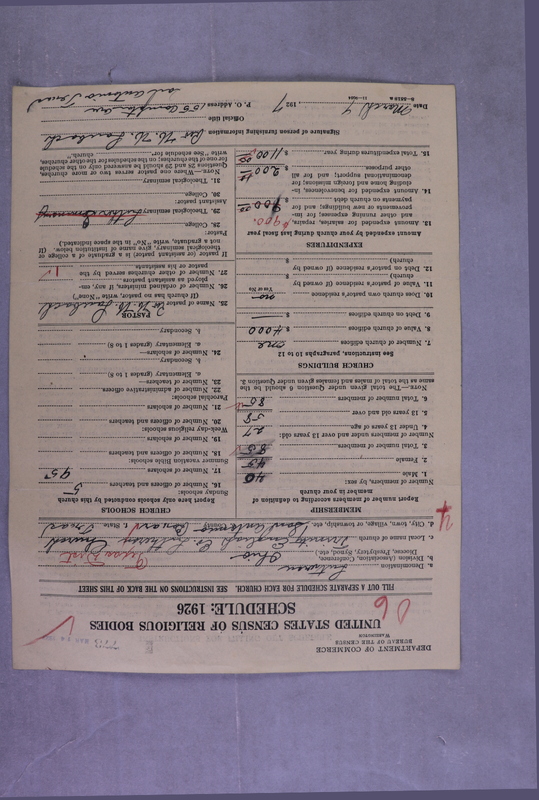 DEPARTMENT OF COMMERCE
BUREAU OF THE CENSUS
WASHINGTON
UNITED STATES CENSUS OF RELIGIOUS BODIES
SCHEDULE: 1926
FILL OUT A SEPARATE SCHEDULE FOR EACH CHURCH. SEE INSTRUCTIONS ON THE BACK OF THIS SHEET
a. Denomination Lutheran
b. Division (Association, Conference, Diocese, Presbytery, Synod, etc.) Ohio Texas Dist
c. Local name of church Trinity English Ev. Lutheran Church
d. City, town, village, or township, etc. San Antonio County Bexar State Texas
MEMBERSHIP
Report number of members according to definition of member in your church
Number of members, by sex:
1. Male 40
2. Female 45
3. Total number of members 85
Number of members under and over 13 years old:
4. Under 13 years of age 27
5. 13 years old and over 58
6. Total number of members 85
NOTE.—The total given under Question 6 should be the same as the total of males and females given under Question 3.
CHURCH BUILDINGS
See Instructions, paragraphs 10 to 12
7. Number of church edifices one
8. Value of church edifices $ 4000
9. Debt on church edifices $
10. Does church own pastor's residence no
Yes or No
11. Value of pastor's residence (if owned by church) $
12. Debt on pastor's residence (if owned by church) $
EXPENDITURES
Amount expended by your church during last fiscal year
13. Amount expended for salaries, repairs, and other running expenses; for improvements or new building; and for payments on church debt $ 900.
14. Amount expended for benevolence, including home and foreign missions; for denominational support; and for all other purposes $ 200.00
15. Total expenditures during year $ 1100.00
CHURCH SCHOOLS
Report here only schools conducted by this church
Sunday schools:
16. Number of officers and teachers 5
17. Number of scholars 45
Summer vacation Bible schools:
18. Number of officers and teachers
19. Number of scholars
Week-day religious schools:
20. Number of officers and teachers
21. Number of scholars
Parochial schools:
22. Number of administrative officers
23. Number of teachers—
a. Elementary (grades 1 to 8)
b. Secondary
24. Number of scholars—
a. Elementary (grades 1 to 8)
b. Secondary
PASTOR
25. Name of pastor
(If church has no pastor, write "None")
26. Number of ordained ministers, if any, employed as assistant pastors
27. Number of other churches served by the pastor or his assistants
If pastor (or assistant pastor) is a graduate of a college or theological seminary, give name of institution below. (If not a graduate, write "No" in the space indicated.)
Pastor:
28. College
29. Theological seminary Luther Seminary
Assistant pastor:
30. College
31. Theological seminary
NOTE.—Where one pastor serves two or more churches, Questions 25 and 27 should be answered only on the schedule for one of the churches; on the schedules for the other churches, write "See schedule for church."
Signature of person furnishing information
Official title
Date March 7, 1927
P. O. Address
San Antonio Texas